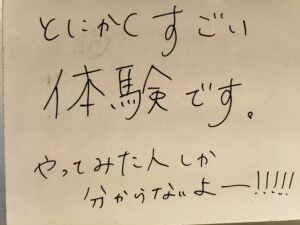 とにかくすごい
体験です。
やってみた人しか
分からないよー!!!!!